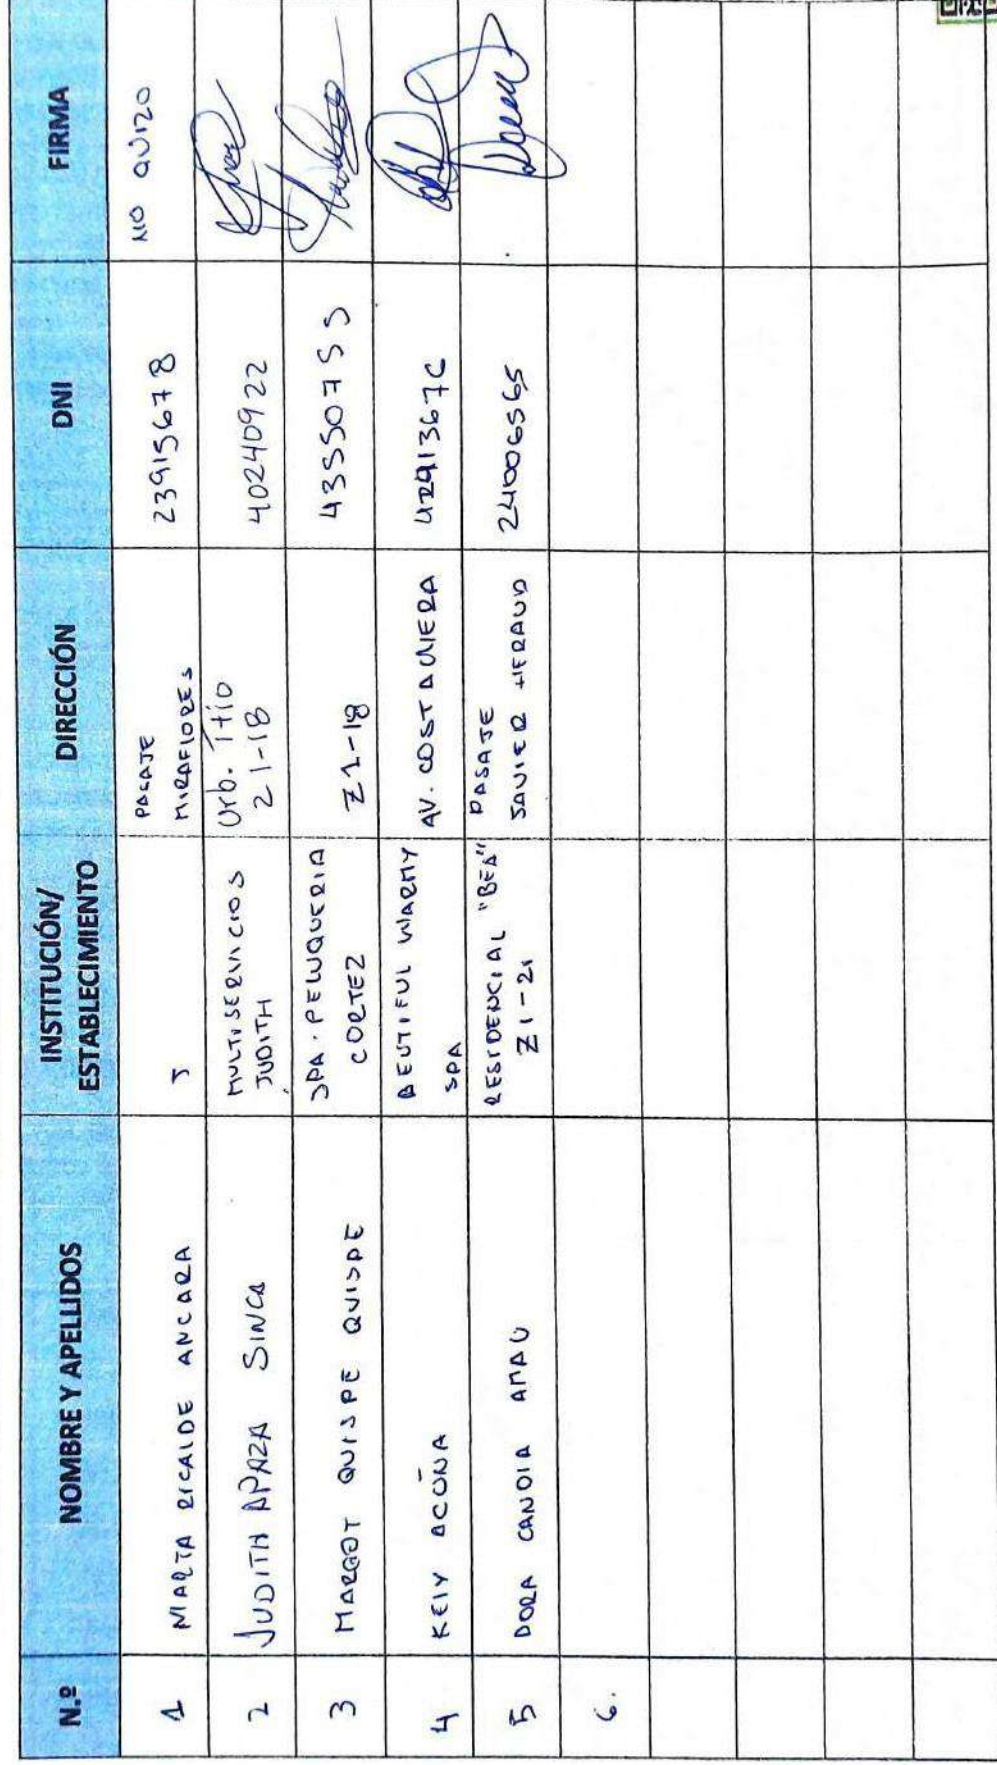 N.º NOMBRE Y APELLIDOS INSTITUCIÓN/ ESTABLECIMIENTO DIRECCIÓN DNI FIRMA
1 MARTA RICALDE ANCARA PASAJE MIRAFLORES 23915678 NO QUIZO
2 JUDITH APAZA SINCA MULTISERVICIOS JUDITH Urb. Ttio Z1-18 40240922
3 MARGOT QUISPE QUISPE SPA. PELUQUERIA CORTEZ Z1-18 43550755
4 KEIY ACUÑA BEUTIFUL WARMY SPA AV. COSTANERA
5 DORA CANDIA AMAU RESIDENCIAL "BEA" Z1-21 PASAJE JAVIER HERAUD 24006565
6.